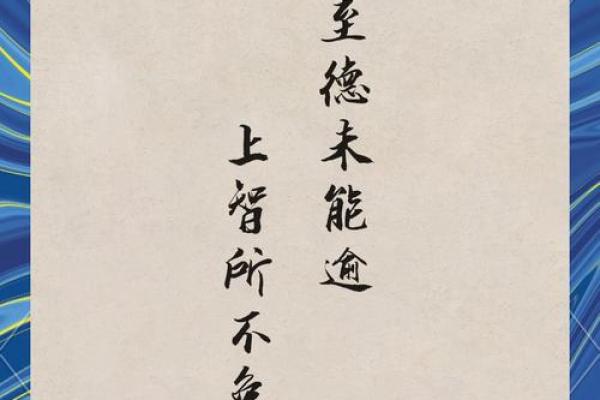 至德未能逾
上智所不免